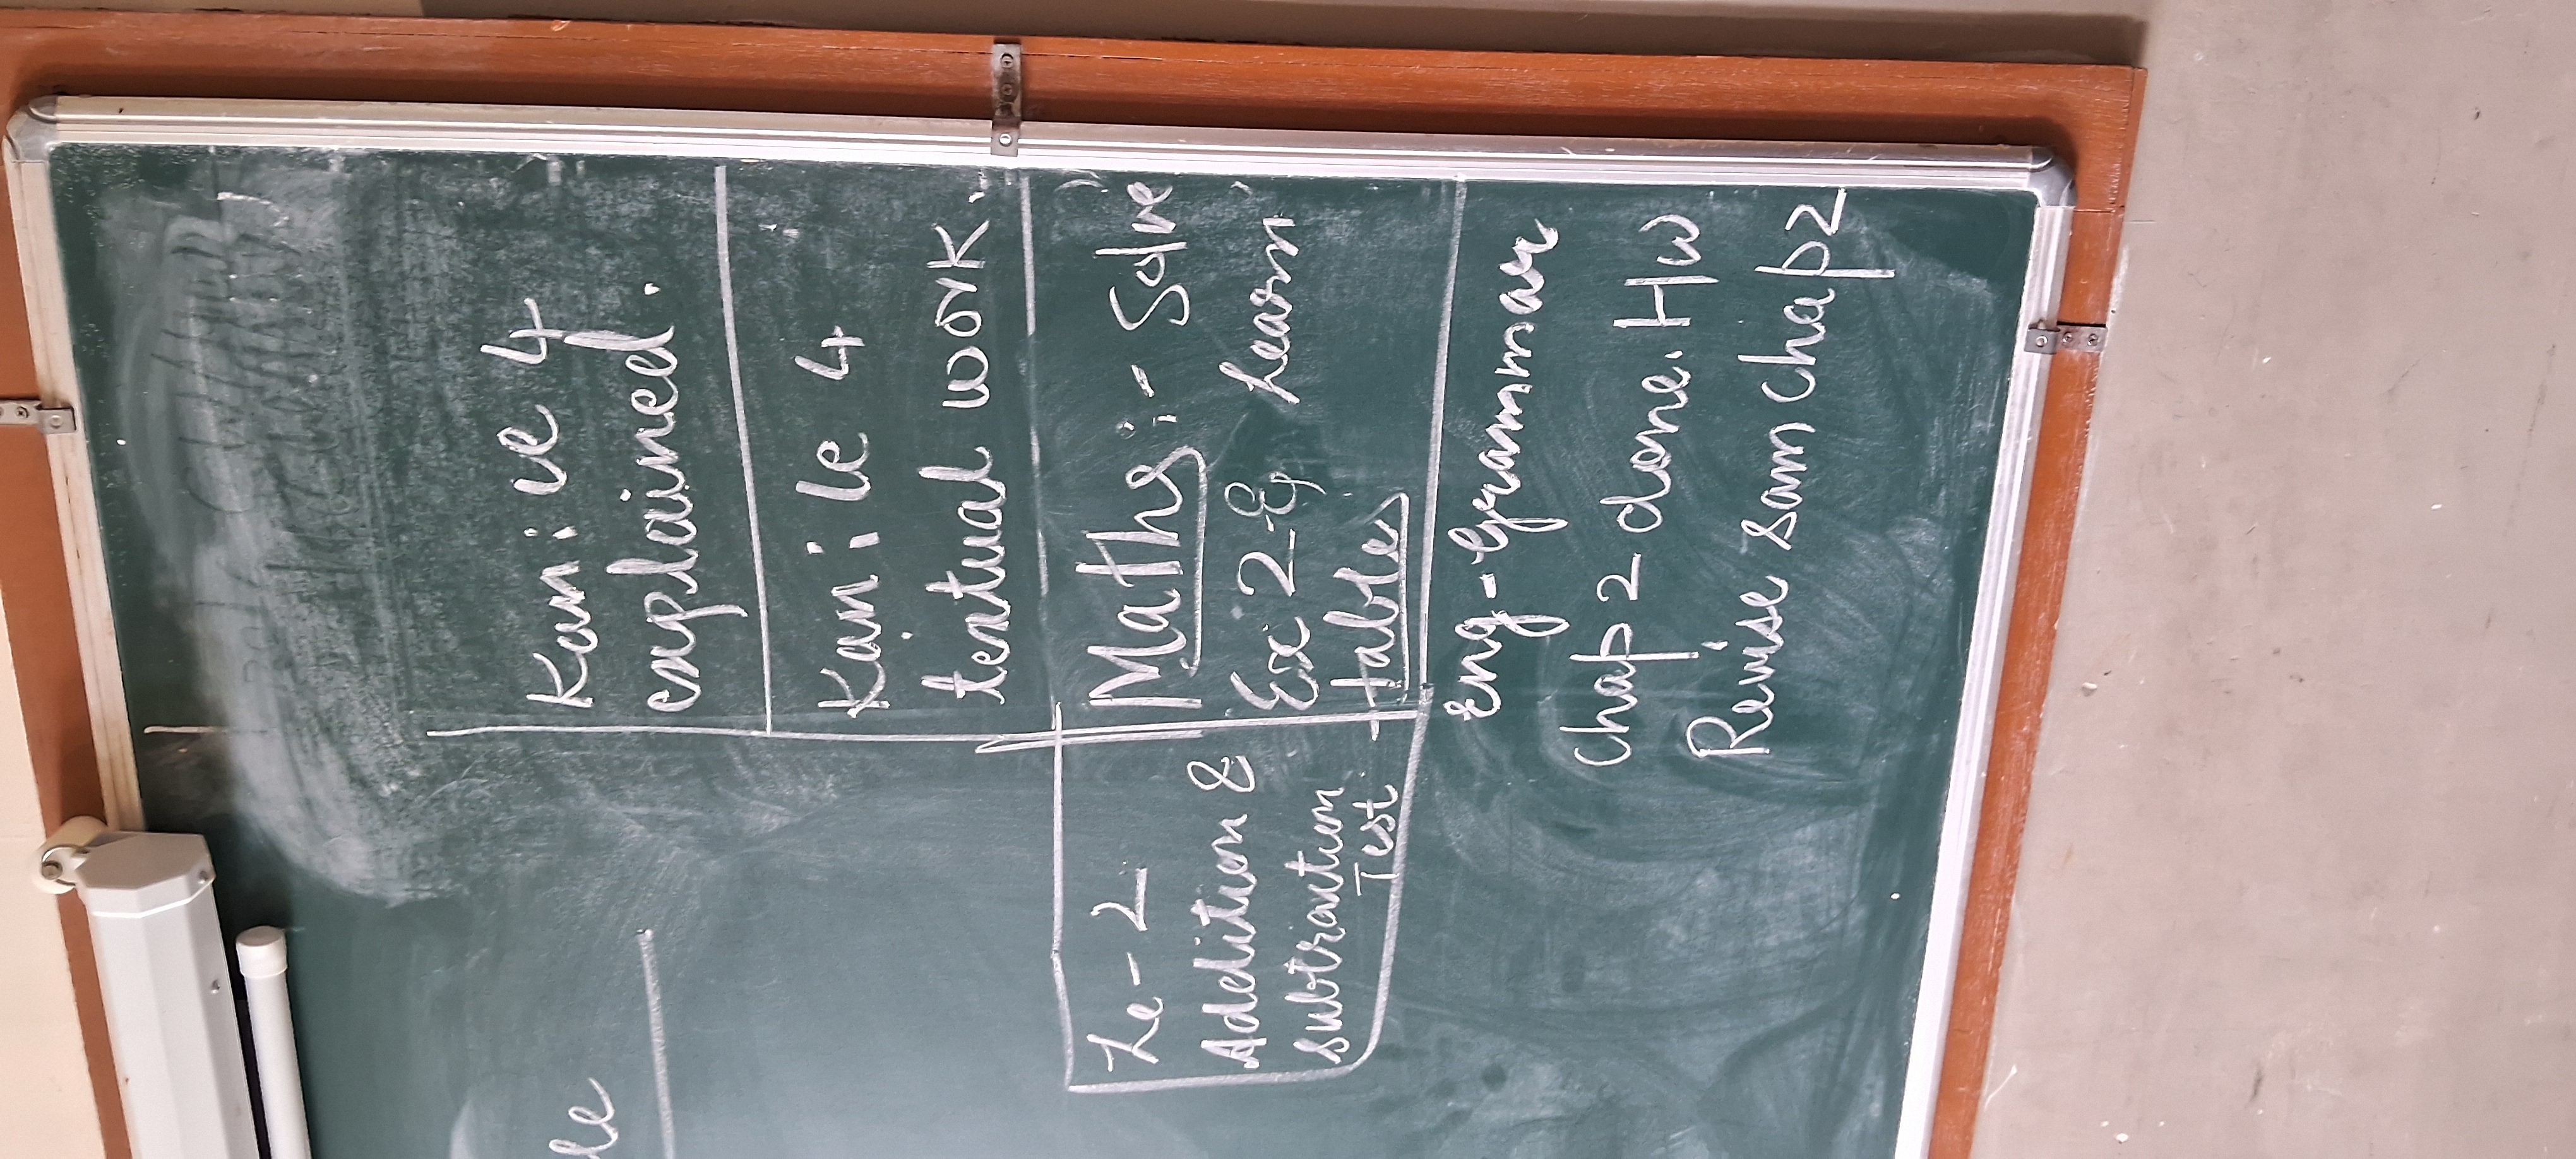 Kan: le 4
explained.
Kan: le 4
textual work.
Maths:- Solve
Ex 2-G, Learn
tables
Le-2
Addition &
subtraction
Test
Eng-Grammar
Chap 2 done. HW
Revise sam chap2